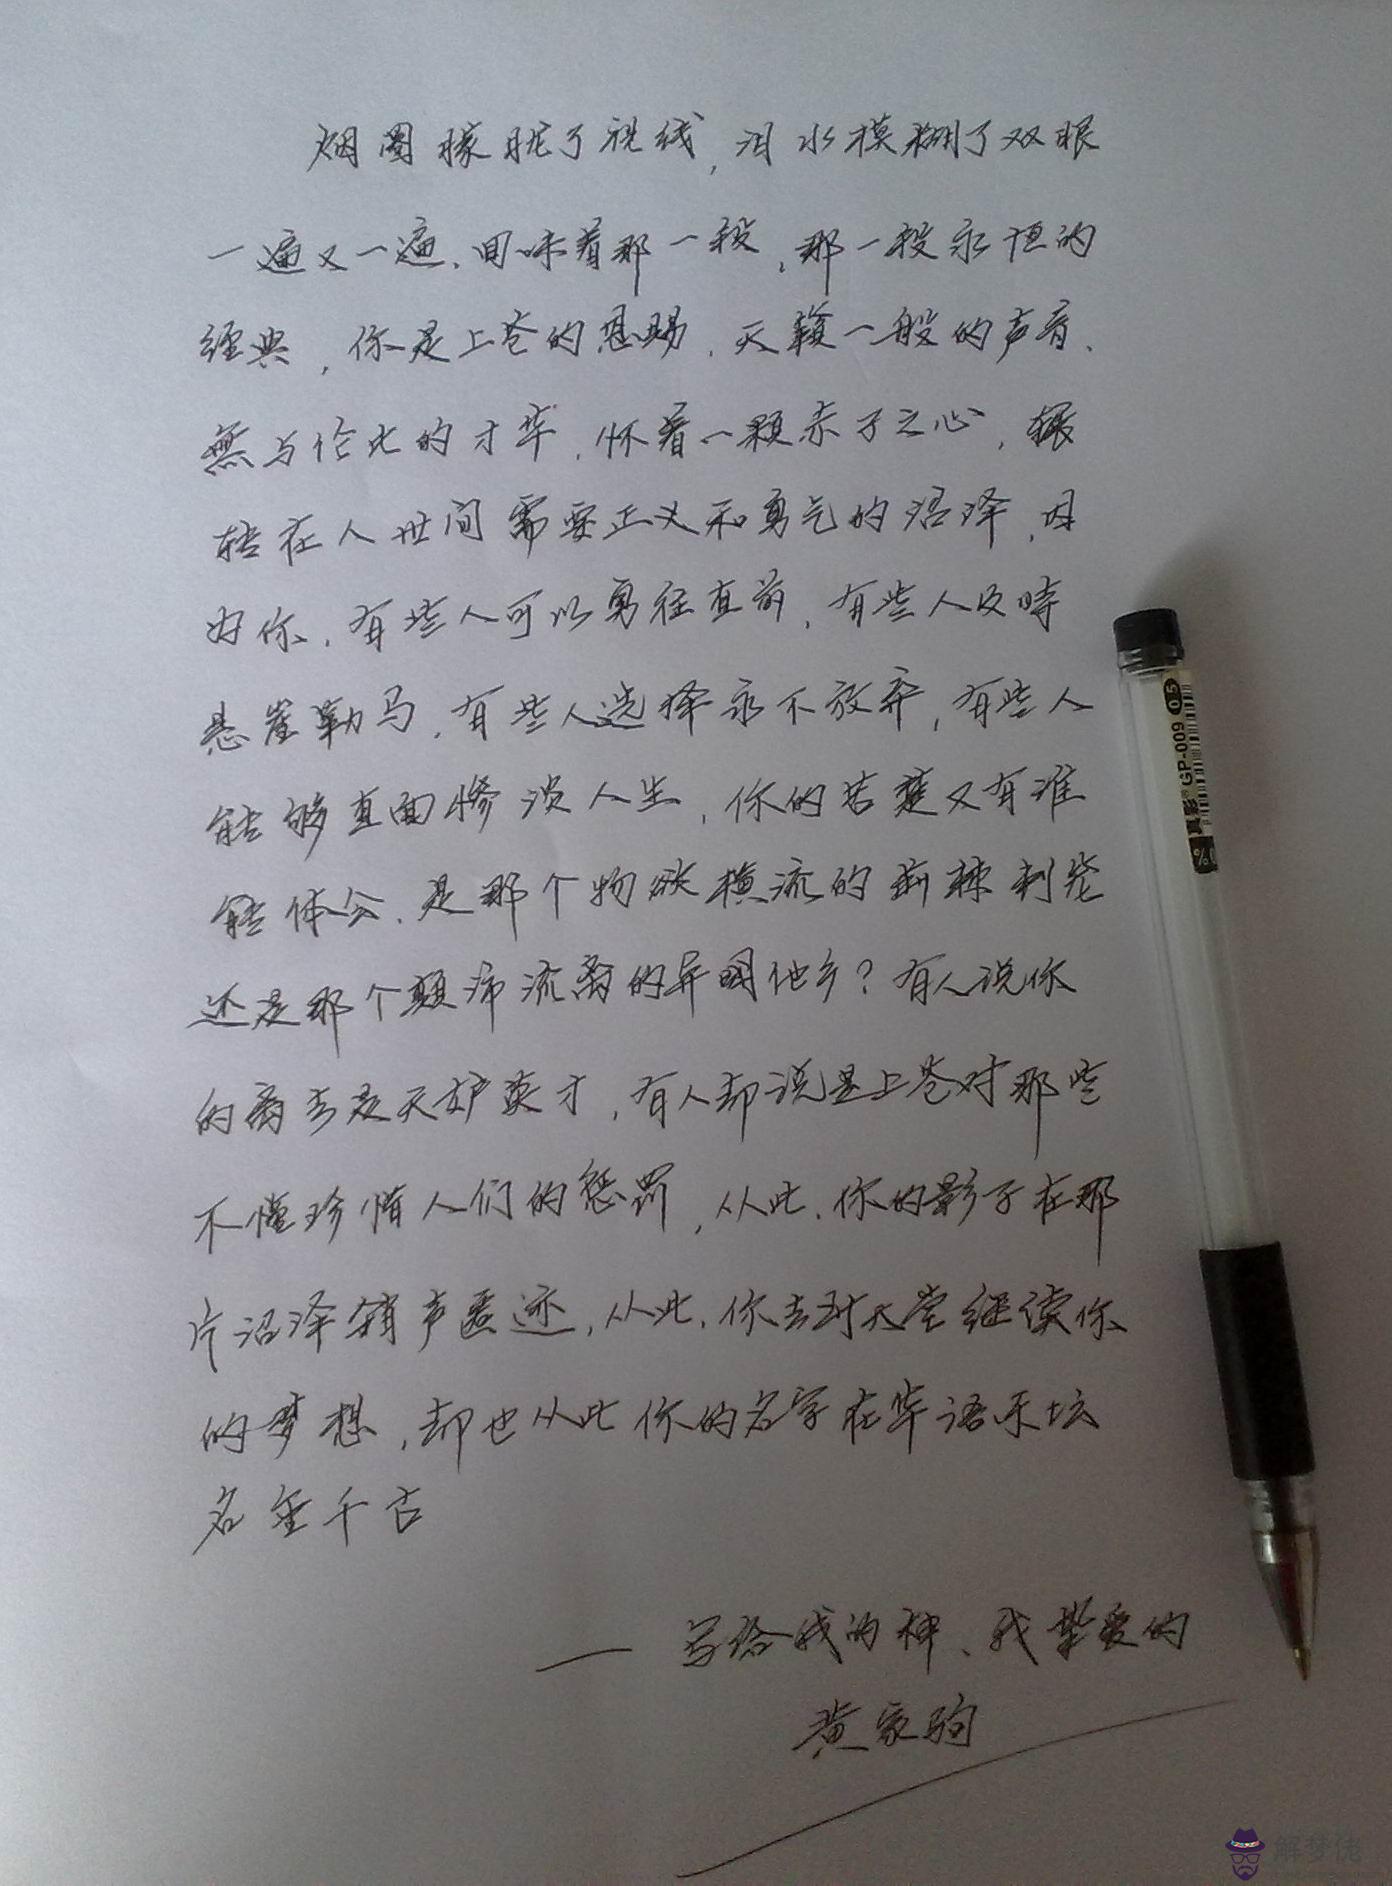 烟圈朦胧了视线,泪水模糊了双眼
一遍又一遍,回味着那一段,那一段永恒的
经典,你是上苍的恩赐,天籁一般的声音、
無与伦比的才华,怀着一颗赤子之心,辗
转在人世间需要正义和勇气的沼泽,因
为你,有些人可以勇往直前,有些人及時
悬崖勒马,有些人选择永不放弃,有些人
能够直面惨淡人生,你的苦楚又有谁
能体会,是那个物欲横流的荆棘利
还是那个颠沛流离的异国他乡?有人说你
的离去是天妒英才,有人却说是上苍对那些
不懂珍惜人们的惩罚,从此,你的影子在那
片沼泽销声匿迹,从此,你去到天堂继续你
的梦想,却也从此你的名字在华语乐坛
名垂千古
— 写给我的神、我挚爱的
黄家驹
真彩 GP-009 0.5
解梦佬